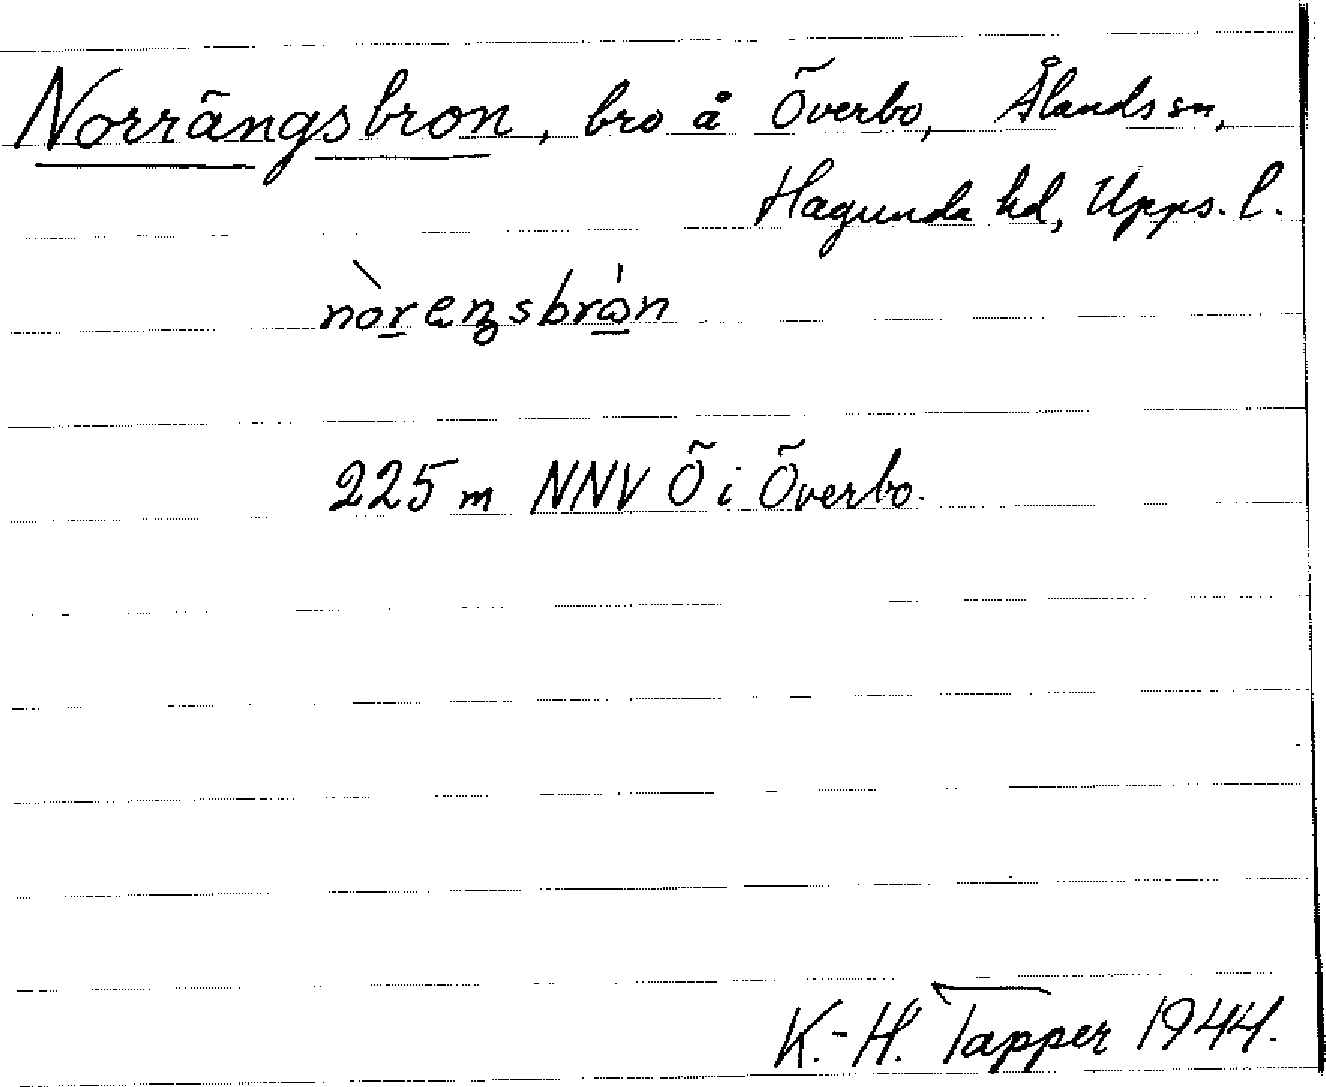 Norrängsbron, bro å Överbo, Ålands sn,
Hagunda hd, Upps. l.
nòrengsbrón
225 m NNV Ö i Överbo.
K.-H. Tapper 1944.